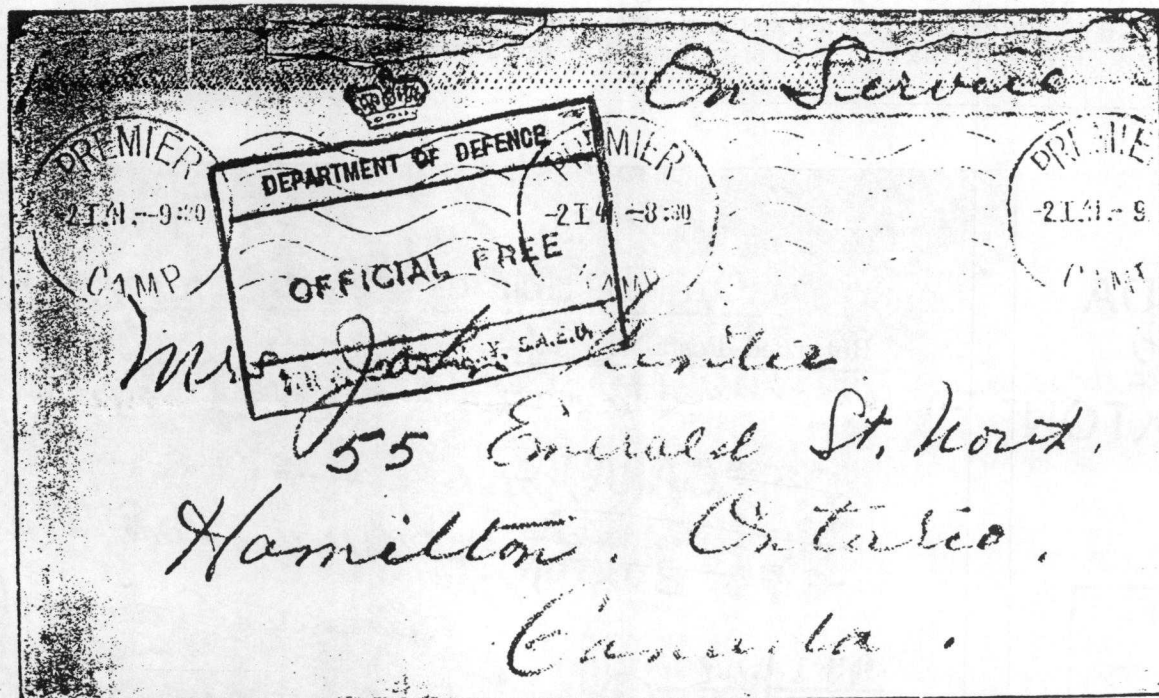 On Service
PREMIER
-2 I 41.--9:30
CAMP
DEPARTMENT OF DEFENCE
OFFICIAL FREE
PREMIER
-2 I 4 -8:30
CAMP
PREMIE
-2 I 41.- 9
CAMP
Mrs John
55 Emerald St. North.
Hamilton. Ontario.
Canada.